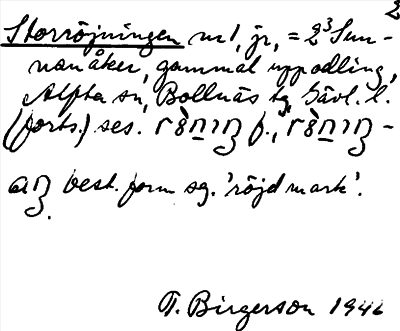 2
Storröjningen nr 1, jr, = 2³ Sun-
nanåker, gammal uppodling,
Alfta sn, Bollnäs tg, Gävl. l.
(forts.) ses. f.,
best. form sg. 'röjd mark'.
T. Birgerson 1946